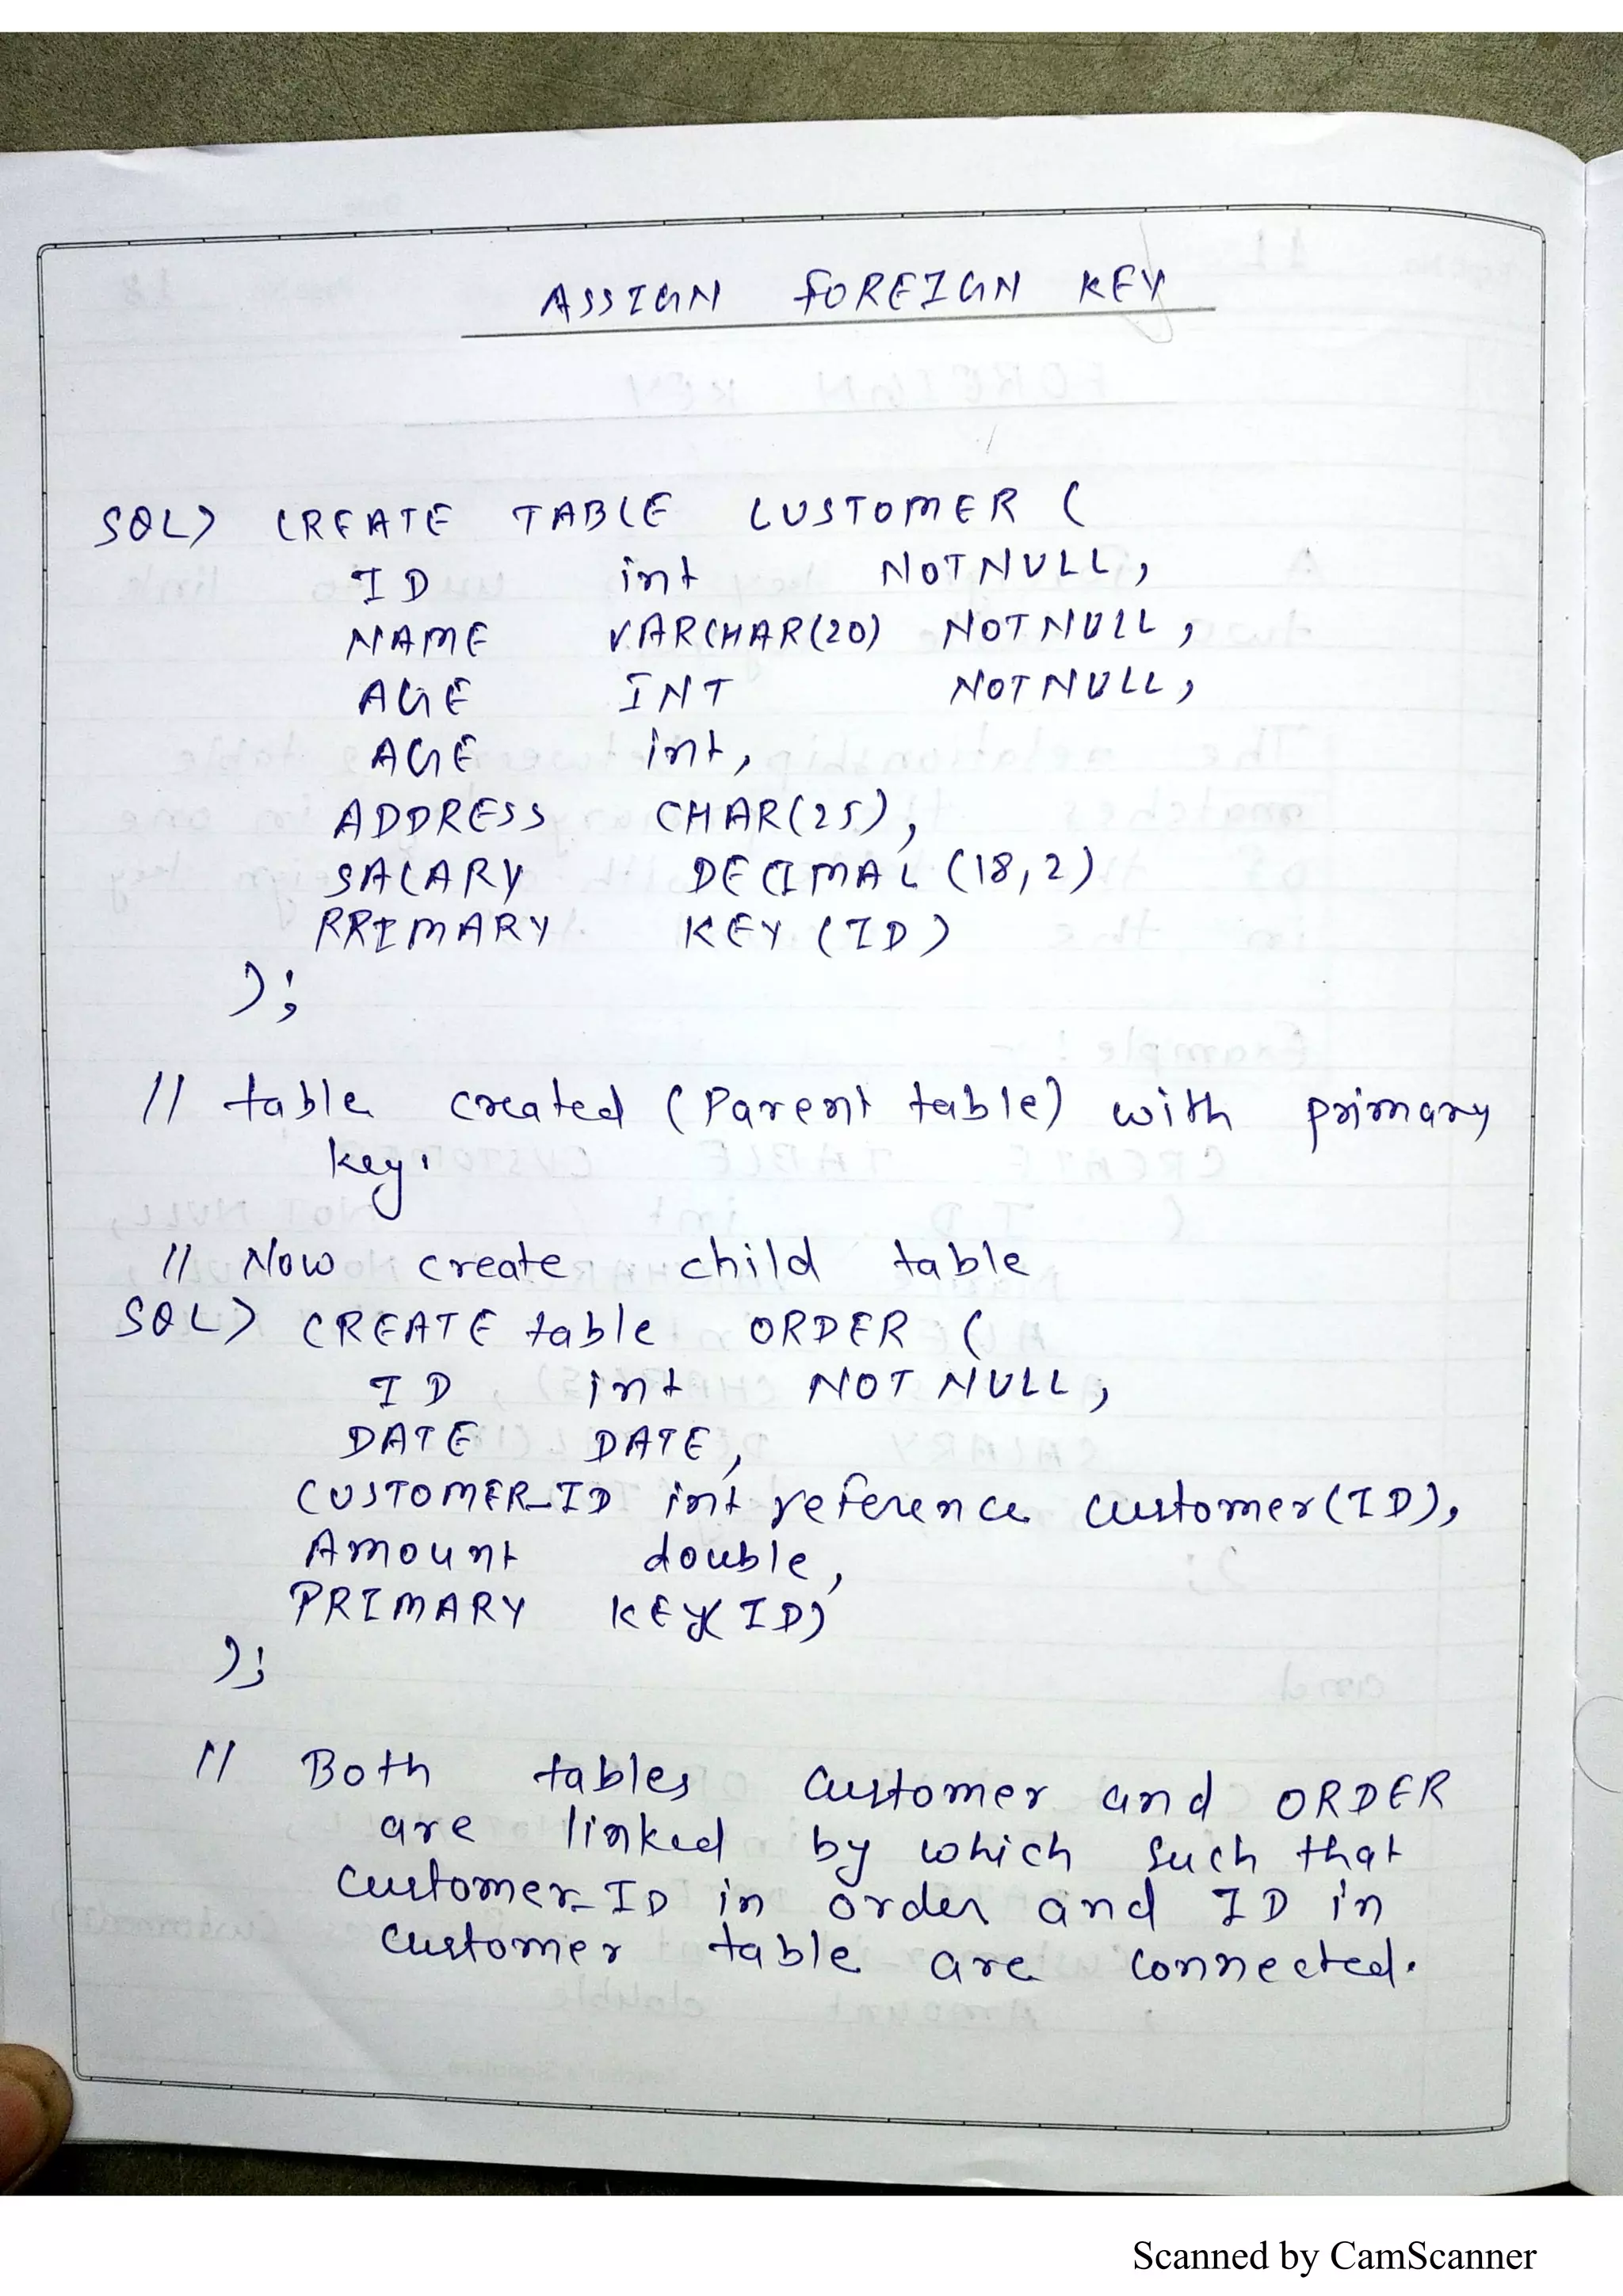 ASSIGN FOREIGN KEY
SQL> CREATE TABLE CUSTOMER (
ID int NOTNULL,
NAME VARCHAR(20) NOTNULL,
AGE INT NOTNULL,
AGE int,
ADDRESS CHAR(25),
SALARY DECIMAL (18,2)
PRIMARY KEY (ID)
);
// table created (Parent table) with primary
key.
// Now create child table
SQL> CREATE table ORDER (
ID int NOT NULL,
DATE DATE,
CUSTOMER_ID int reference customer(ID),
Amount double,
PRIMARY KEY(ID)
);
// Both tables customer and ORDER
are linked by which such that
customer_ID in order and ID in
customer table are connected.
Scanned by CamScanner